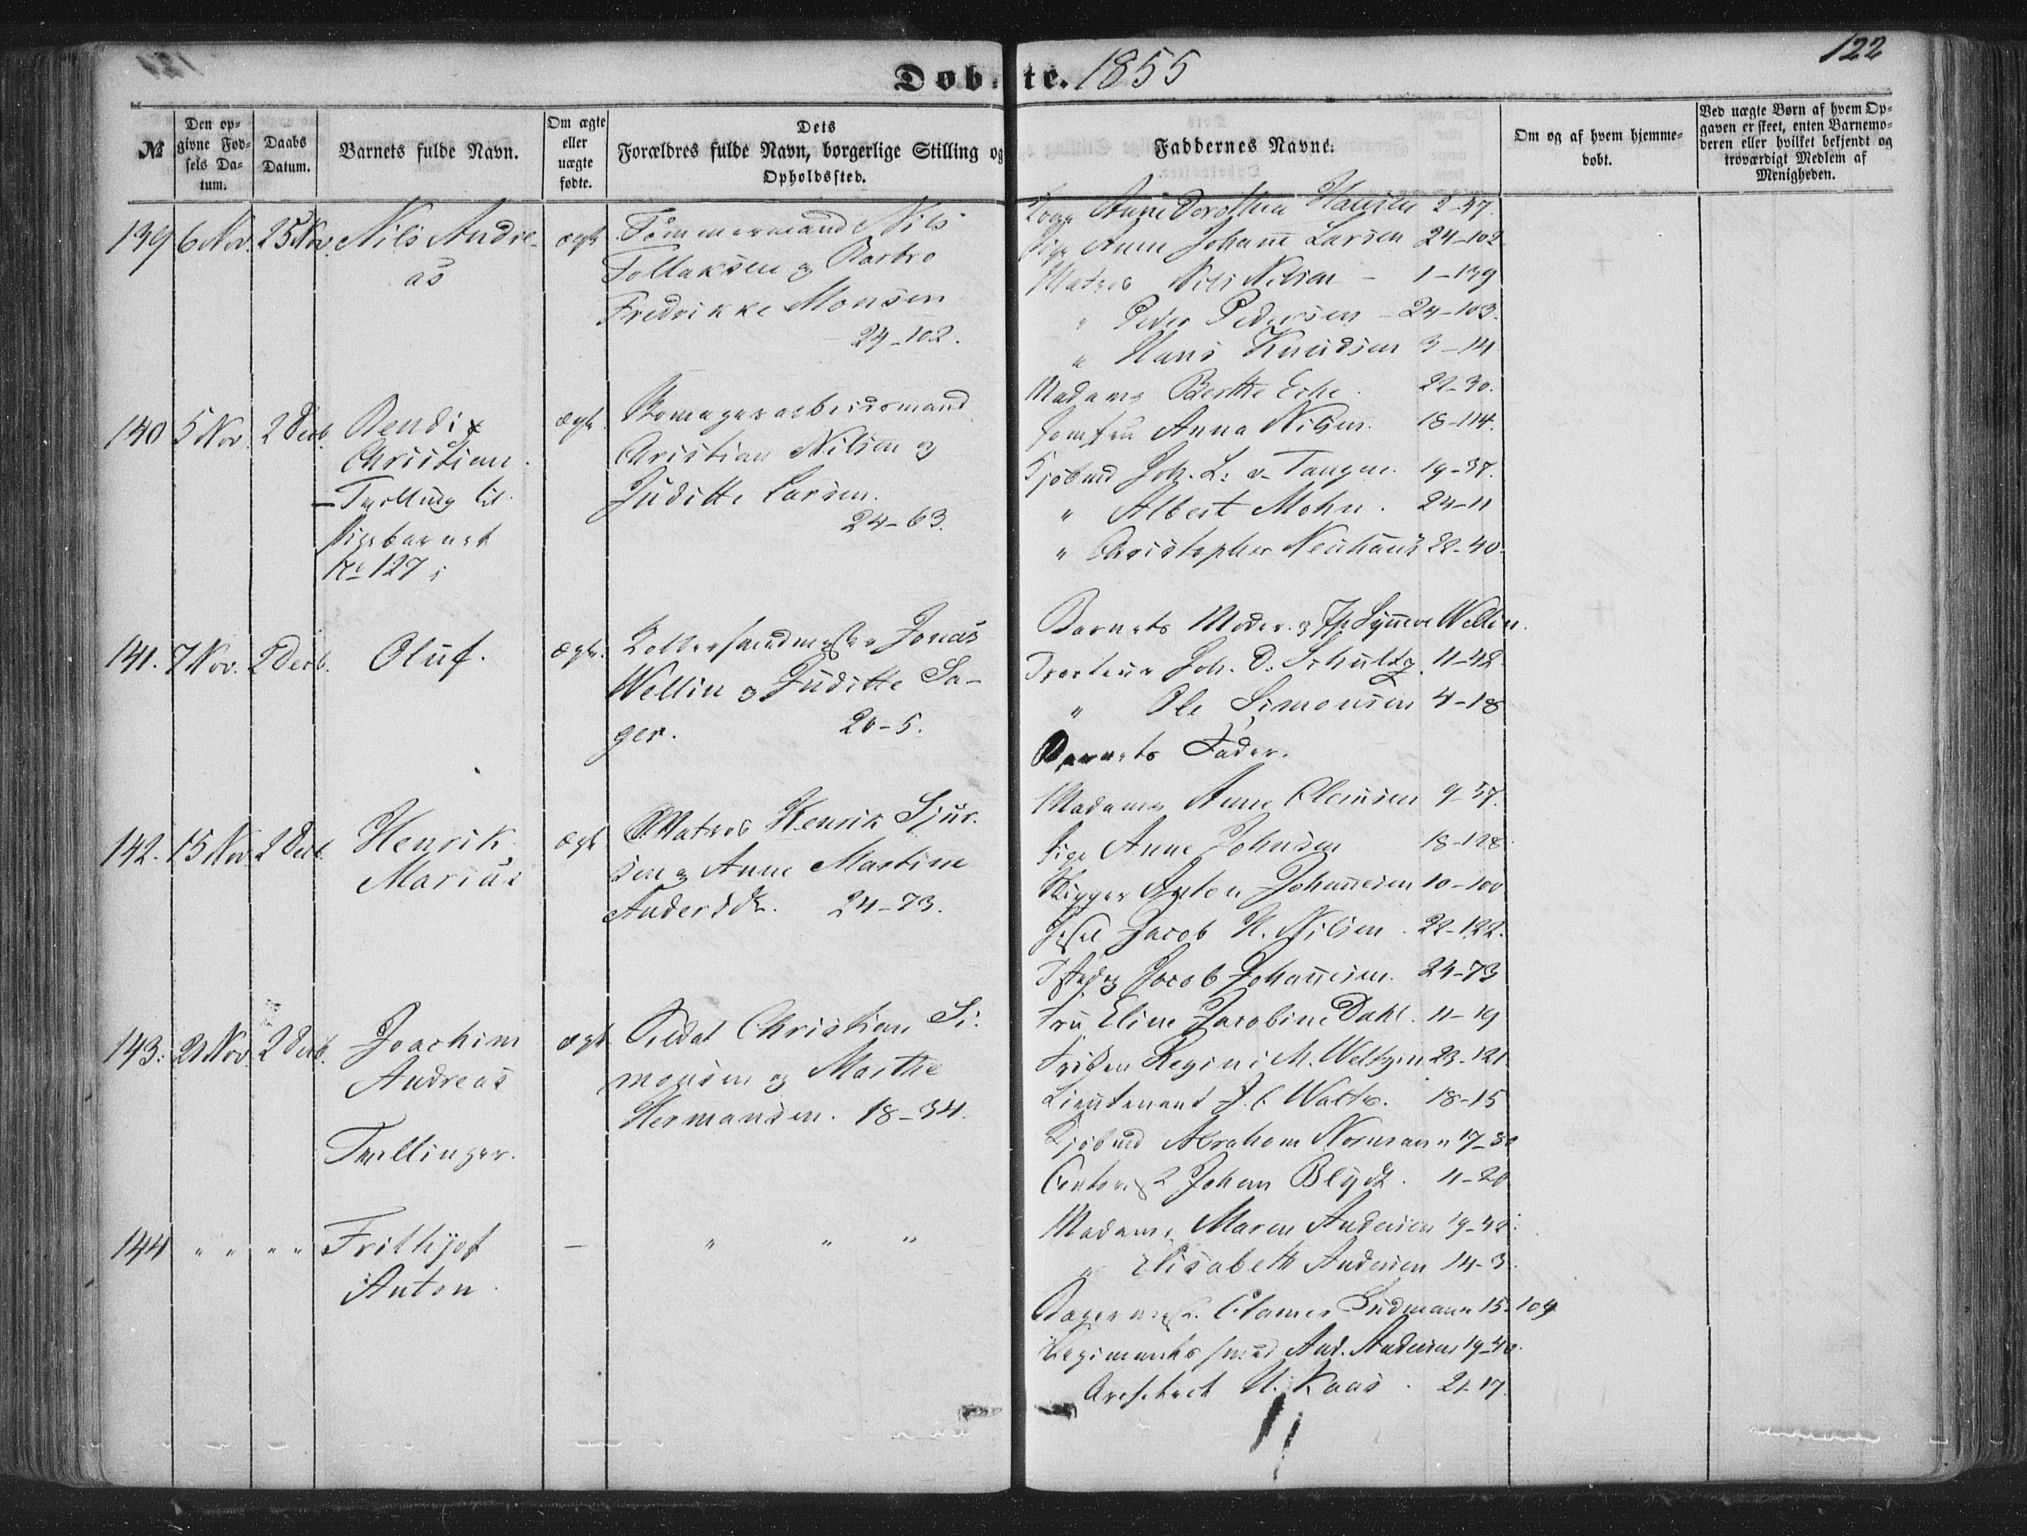 122
Døbte. 1855
№
Den opgivne Fødsels Datum.
Daabs Datum.
Barnets fulde Navn.
Om ægte eller uægte fødte.
Dets Forældres fulde Navn, borgerlige Stilling og Opholdssted.
Faddernes Navne.
Om og af hvem hjemmedøbt.
Ved uægte Børn af hvem Opgaven er skeet, enten Barnemoderen eller hvilket bekjendt og troværdigt Medlem af Menigheden.
139 6 Nov. 25 Nov. Nils Andre-
as
ægte
Tømmermand Nils
Tollaksen og Barbro
Fredrikke Monsen
24-102.
Anne Dorothea Hansen 2-57.
Pige Anne Johanne Larsen 24-102
Matros Nils Nilsen - 1-139
" Peder Pedersen - 24-103.
" Hans Knudsen 3-14
140 5 Nov 2 Decb. Bendix
Christian.
- Tvilling til
Pigebarnet
No 127;
ægte.
Christian Nilsen og
Juditte Larsen.
24-63.
Madame Berthe 22-30.
Jomfru Anna Nilsen. 18-114.
Kjøbmd Joh. L. v. Tangen. 19-37.
" Albert Mohn. 24-11
" Christopher Neuhaus 22-40.
141. 7 Nov. 2 Decb. Oluf.
ægte.
Jonas
Wellin og Juditte Sa-
ger. 20-5.
Barnets Moder og Wellin.
Joh. D. Schultz. 11-42
" Ole Simonsen 4-18
Barnets Fader.
142. 15 Nov 2 Decb. Henrik
Marius
ægte
Matros Henrik Sjur-
sen og Anne Martine
Andersdtr. 24-73.
Madame Anne Clemsen 9-57.
Pige Anne Johnsen 18-128.
Skipper Anton Johannesen 10-100
Jacob H. Nilsen. 22-122.
Jacob Johannesen. 24-73
143. 21 Nov. 2 Decb. Joachim
Andreas
Tvillinger.
ægte
Soldat Christian Si-
monsen og Marthe
Hermansen. 18-34.
Fru Eline Jacobine Dahl. 11-19
Frøken Regine M. Weltzin 23-121
Lieutenant J. C. 18-15
Kjøbmd Abraham Normann 17-30
Johan Blydt. 11-20
144 " " " " Frithjof
Anton.
-
" " "
Madame Maren Andersen 19-42.
" Elisabeth Andersen 14-3.
Clamer Sudmann 15-109
Regiments smed And. Andersen 19-40.
Architect H. Kaas. 21-17.